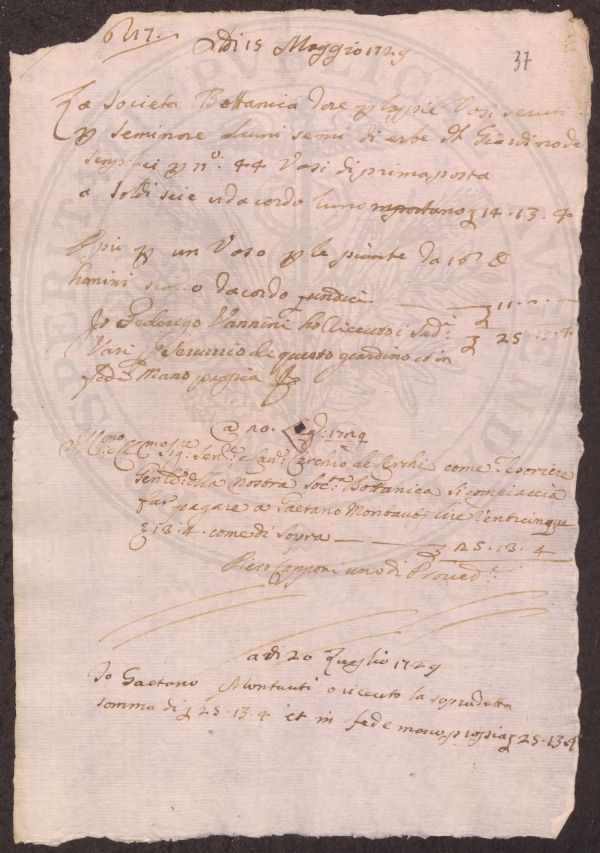 617.
Adi 15 Maggio 1729
37
La Società Bottanica dare p Vasi
p Seminare aluni semi di erbe Giardino de
Semplici p n°. 44 Vasi di prima posta
a Soldi seie dacordo luno inportano £ 14.13.4
E piu p un Vaso p le piante da
dacordo £ 11. -. -
£ 25.13.4
Io Federigo Vannini ho riceuto i Sud.i
Vasi p Servizio di questo giardino et in
fede Mano propia
A 20. Lug.o 1729
Sig.r Sen.re e Cav.r Cerchio de Cerchi come Tesoriere
Gen.le della Nostra Soc.tà Bottanica si compiaccia
far pagare a Gaetano Montauti lire Venticinque
e 13.4 come di sopra £ 25.13.4
Piero Capponi uno di Proved.ri
adi 20 Luglio 1729
Io Gaetano Montauti o riceuto la sopradetta
somma di £ 25.13.4 et in fede mano propia £ 25.13.4